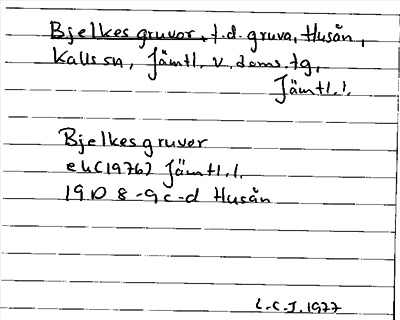 Bjelkes gruvor, f.d. gruva, Husån,
Kalls sn, Jämtl. v. doms. tg,
Jämtl. l.
Bjelkes gruvor
ek (1976) Jämtl. l.
19D 8-9 c-d Husån
L.C.J. 1977